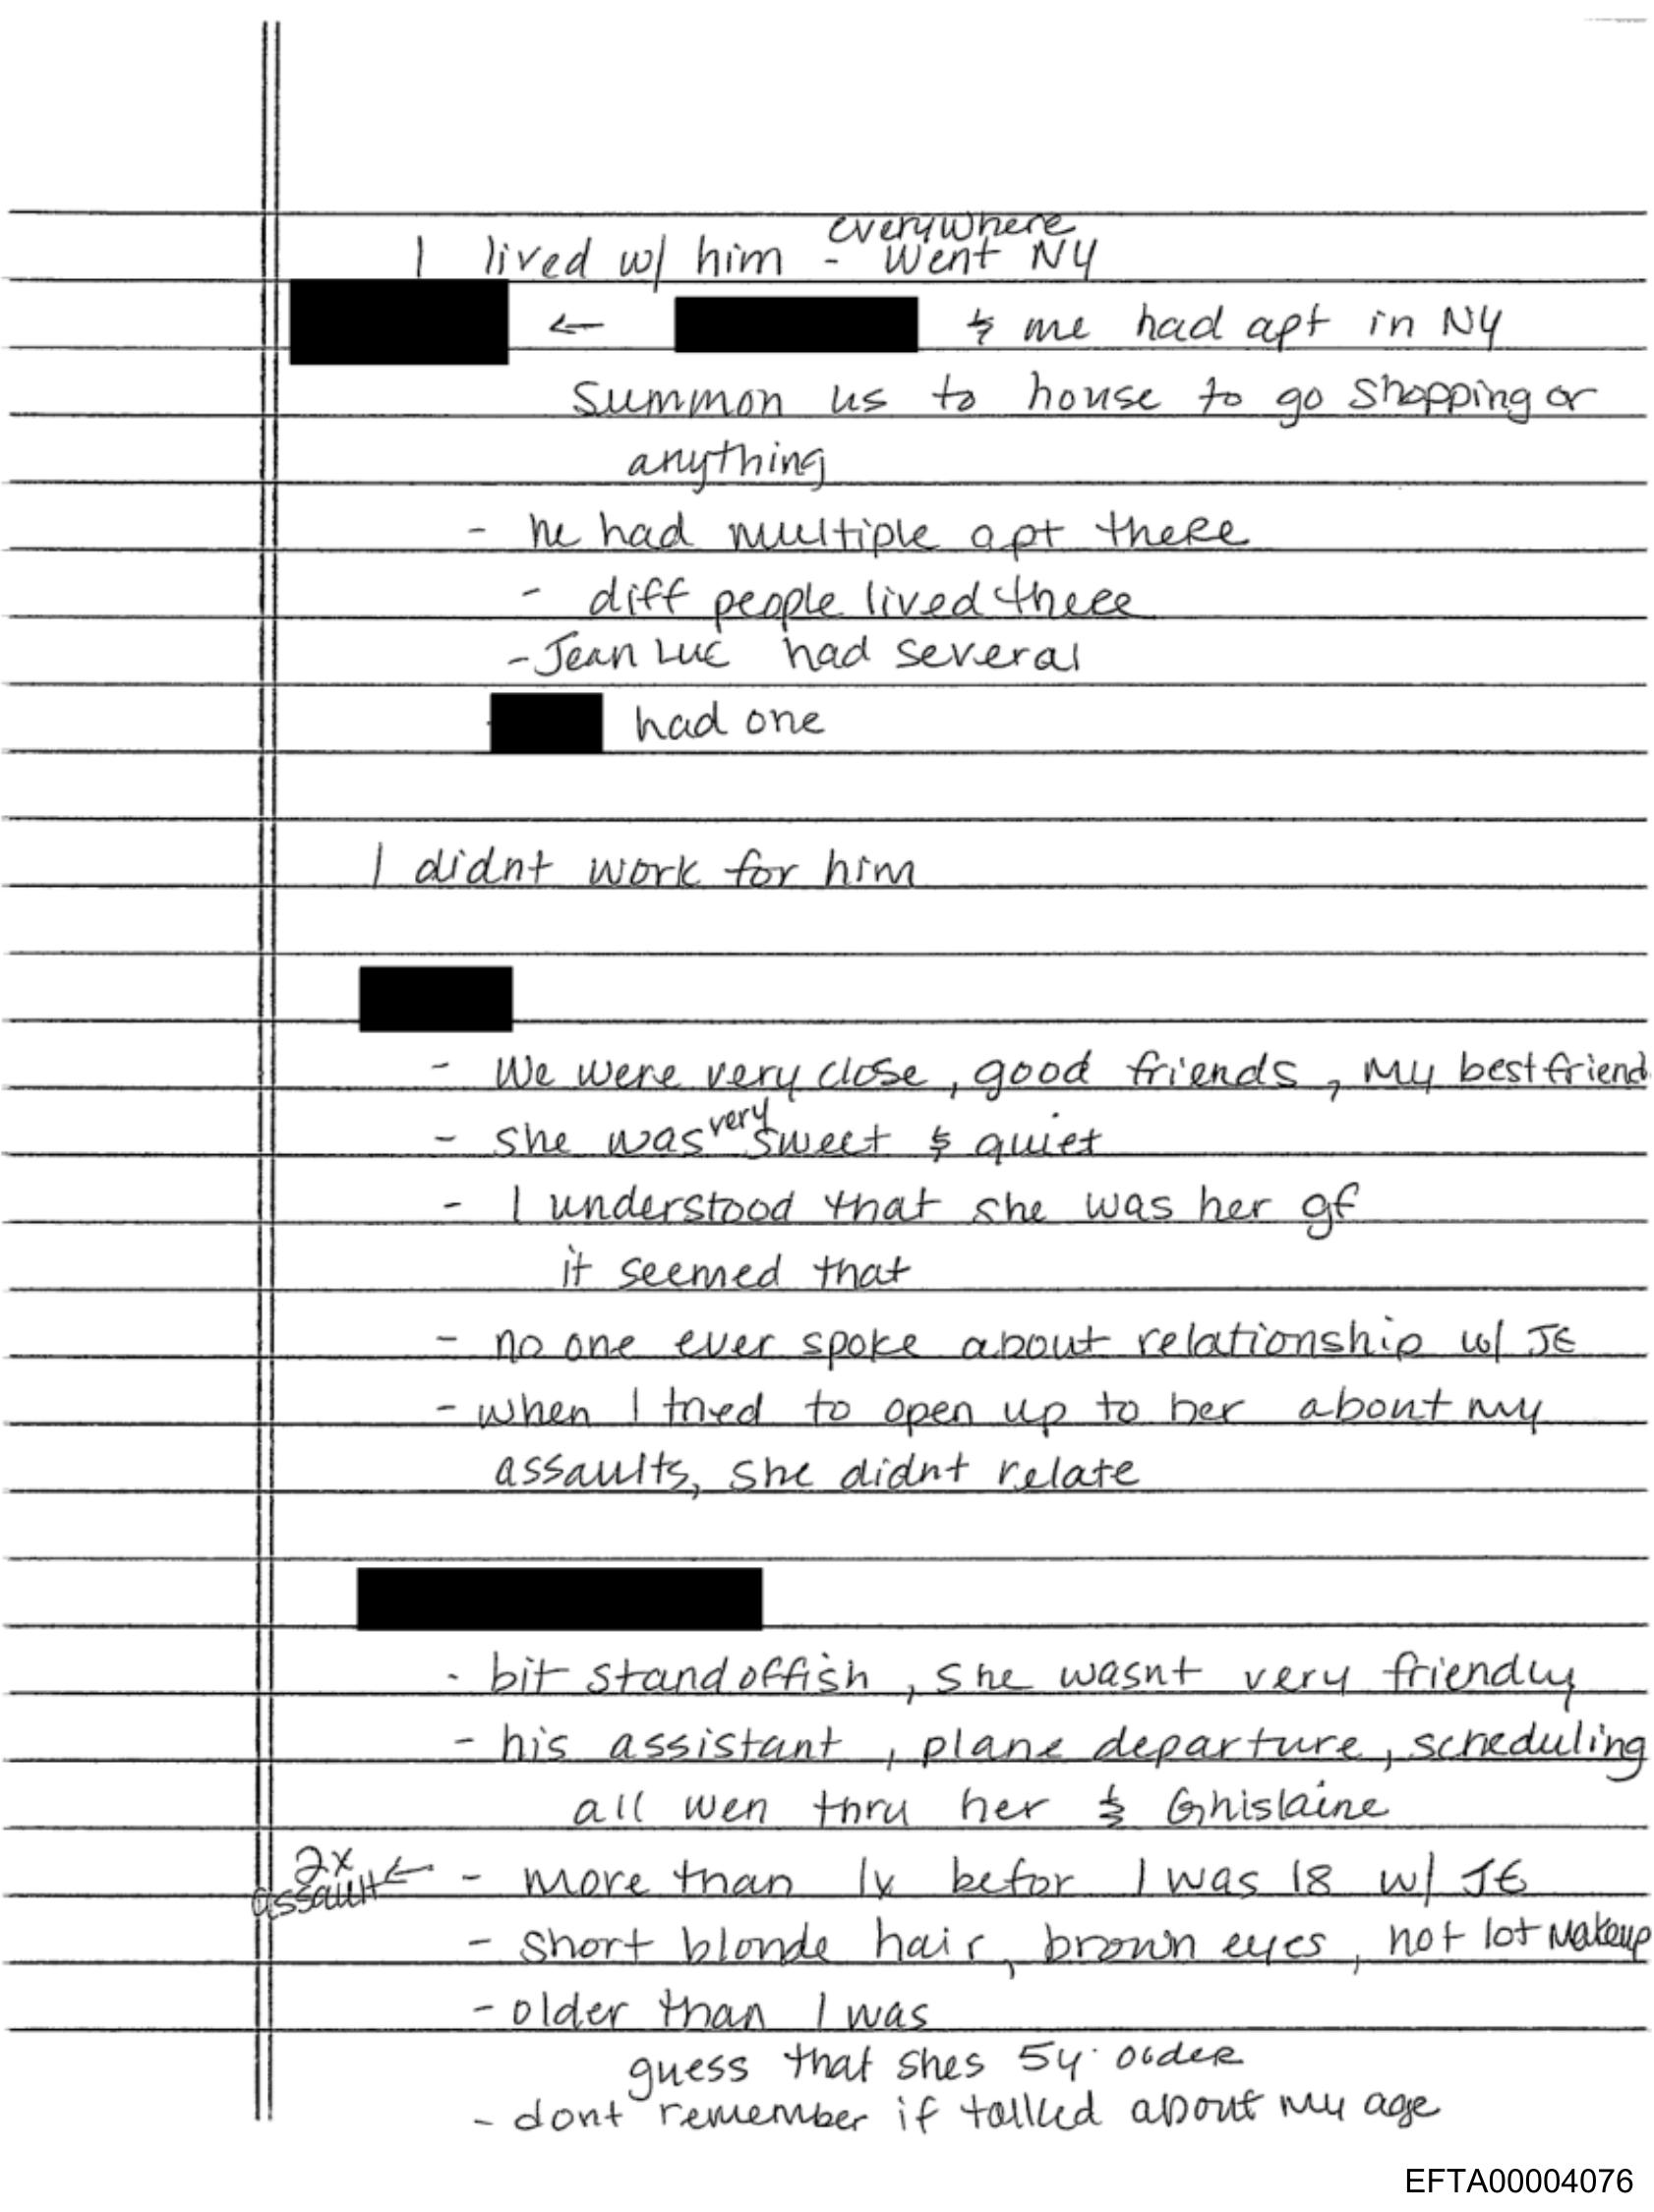 everywhere
I lived w/ him - Went NY
← & me had apt in NY
Summon us to house to go shopping or
anything
- he had multiple apt there
- diff people lived there
- Jean Luc had several
had one
I didnt work for him
- We were very close, good friends, my best friend
- she was very sweet & quiet
- I understood that she was her gf
it seemed that
- no one ever spoke about relationship w/ JE
- when I tried to open up to her about my
assaults, she didnt relate
- bit standoffish, she wasnt very friendly
- his assistant, plane departure, scheduling
all wen thru her & Ghislaine
2x assault ← - more than 1x befor I was 18 w/ JE
- short blonde hair, brown eyes, not lot makeup
- older than I was
guess that shes 5y. older
- dont remember if talked about my age
EFTA00004076